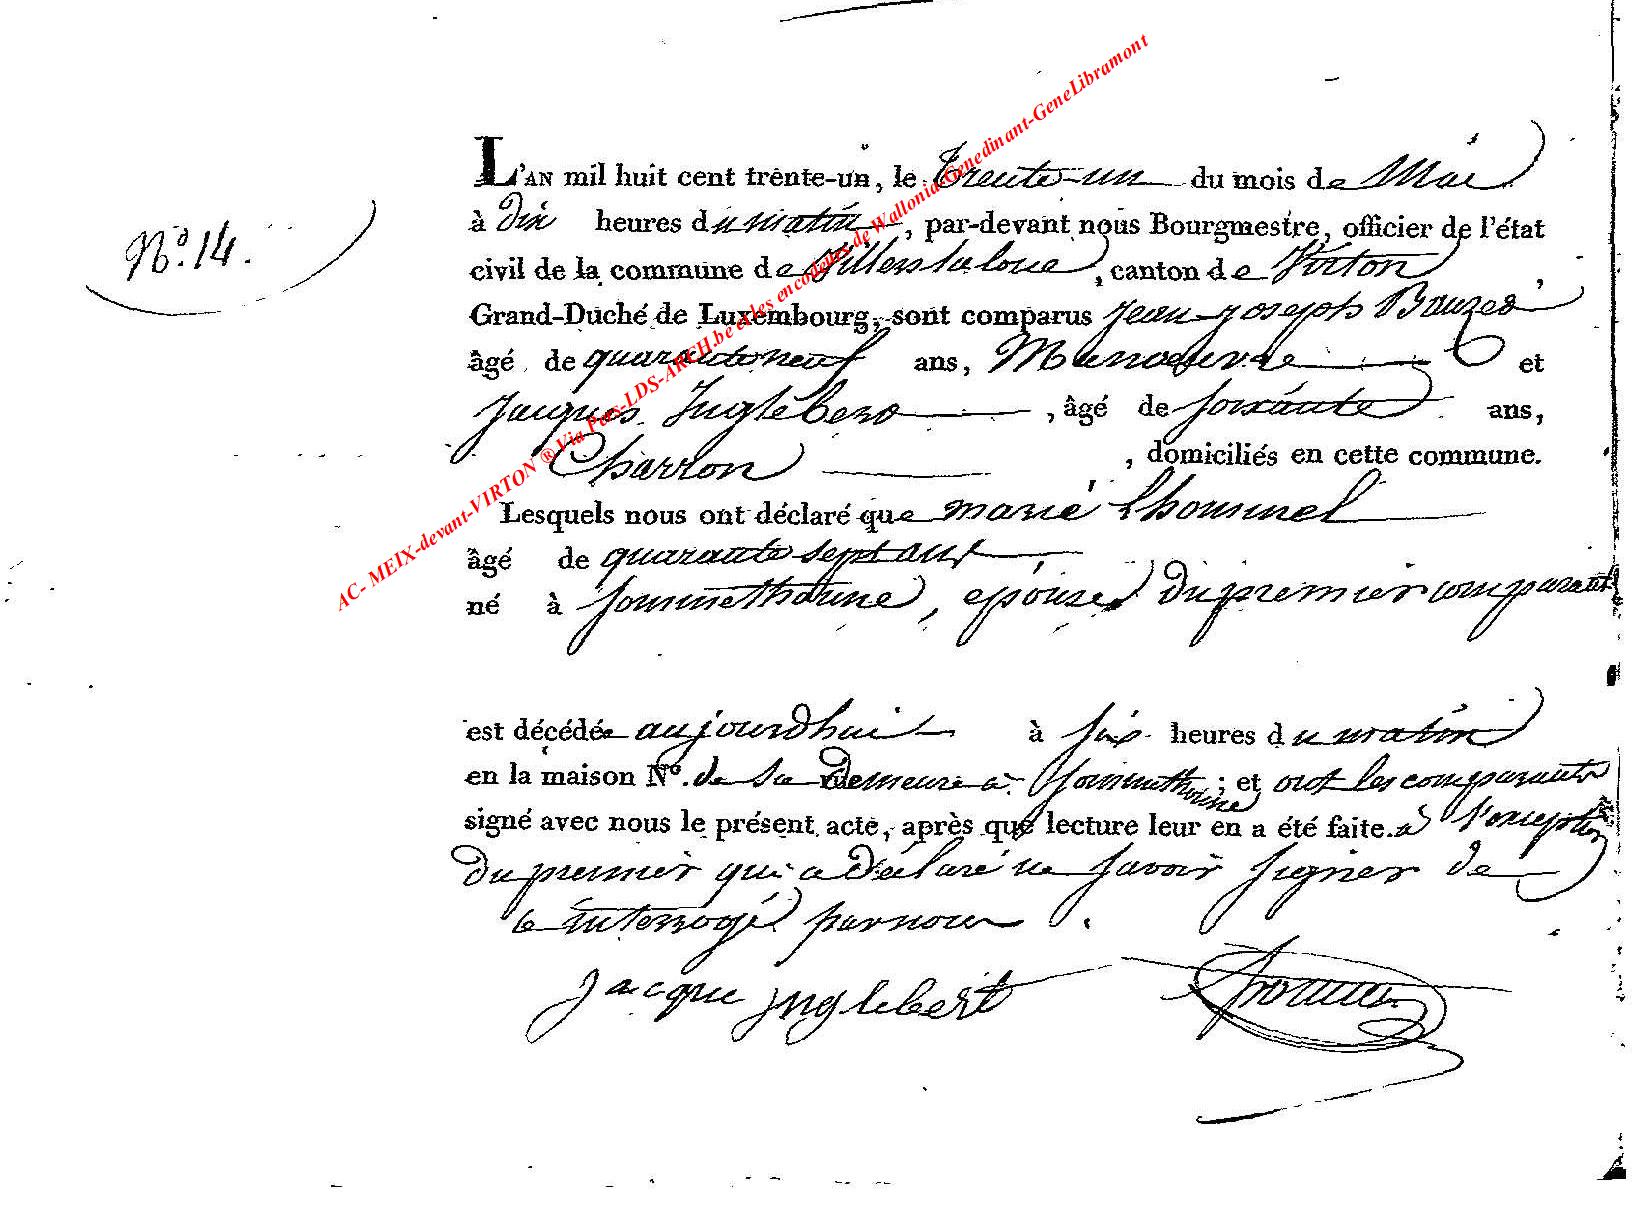 L'AN mil huit cent trente-un, le Trente-un du mois de Mai
N.º 14.
à dix heures du matin, par-devant nous Bourgmestre, officier de l'état
civil de la commune de Villers la loue, canton de Virton,
Grand-Duché de Luxembourg, sont comparus Jean-Joseph
âgé de quarante neuf ans, Manoeuvre et
Jacques Inglebert, âgé de soixante ans,
Charron, domiciliés en cette commune.
Lesquels nous ont déclaré que marie Lhommel
âgé de quarante sept ans
né à Sommethonne, epouse du premier comparant
est décédée aujourdhui à six heures du matin
en la maison Nº. de sa demeure à Sommethonne; et ont les comparants
signé avec nous le présent acte, après que lecture leur en a été faite. à l'exception
du premier qui a déclaré ne savoir signer de
ce interrogé par nous.
Jacque inglebert
AC- MEIX-devant-VIRTON ® Via Pers-LDS-ARCH.be et les encodeurs de Wallonia-Genedinant-GeneLibramont